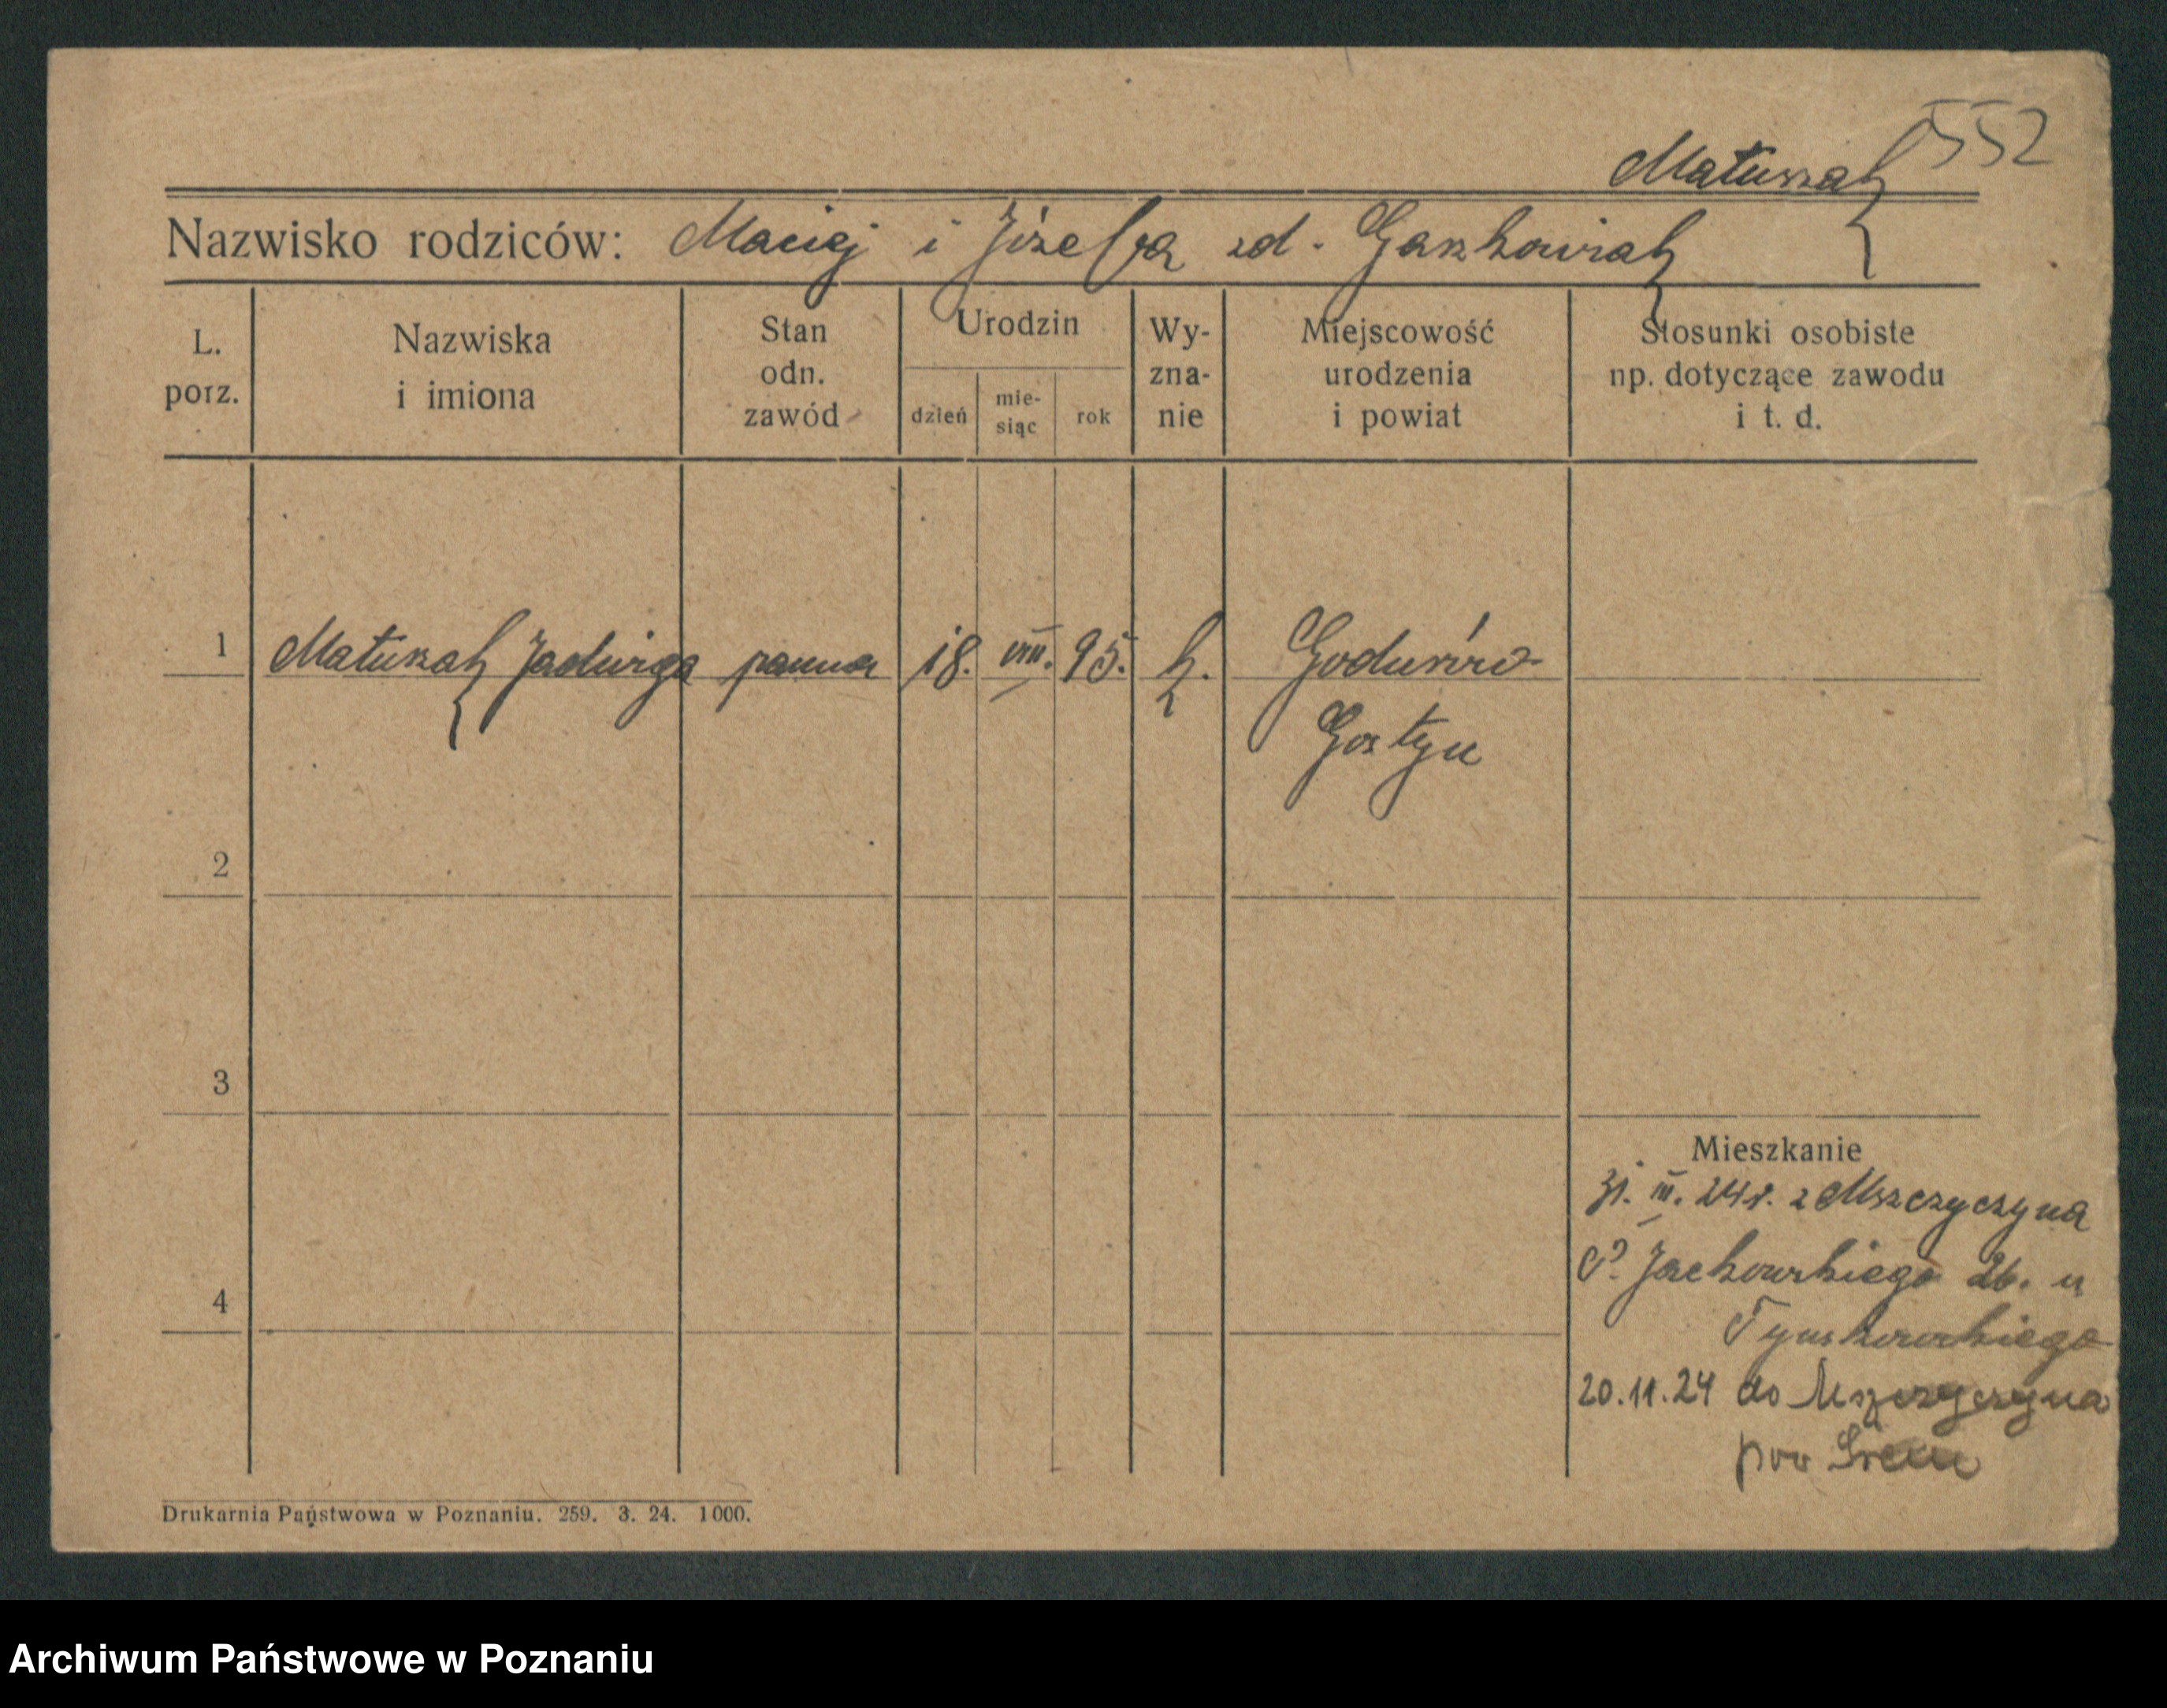 552
Matuszak
Nazwisko rodziców: Maciej i Józefa zd. Gaszkowiak
L. porz.
Nazwiska i imiona
Stan odn. zawód
Urodzin
dzień
mie-siąc
rok
Wy-zna-nie
Miejscowość urodzenia i powiat
Stosunki osobiste np. dotyczące zawodu i t. d.
1 Matuszak Jadwiga panna 18. VIII. 95. k. Godurowo
Gostyń
2
3
4
Mieszkanie
31. III. 24 r. z Mszczyczyna
P. Jackowskiego 26. u
20.11.24 do Mszczyczyna
pow Śrem
Drukarnia Państwowa w Poznaniu. 259. 3. 24. 1000.
Archiwum Państwowe w Poznaniu